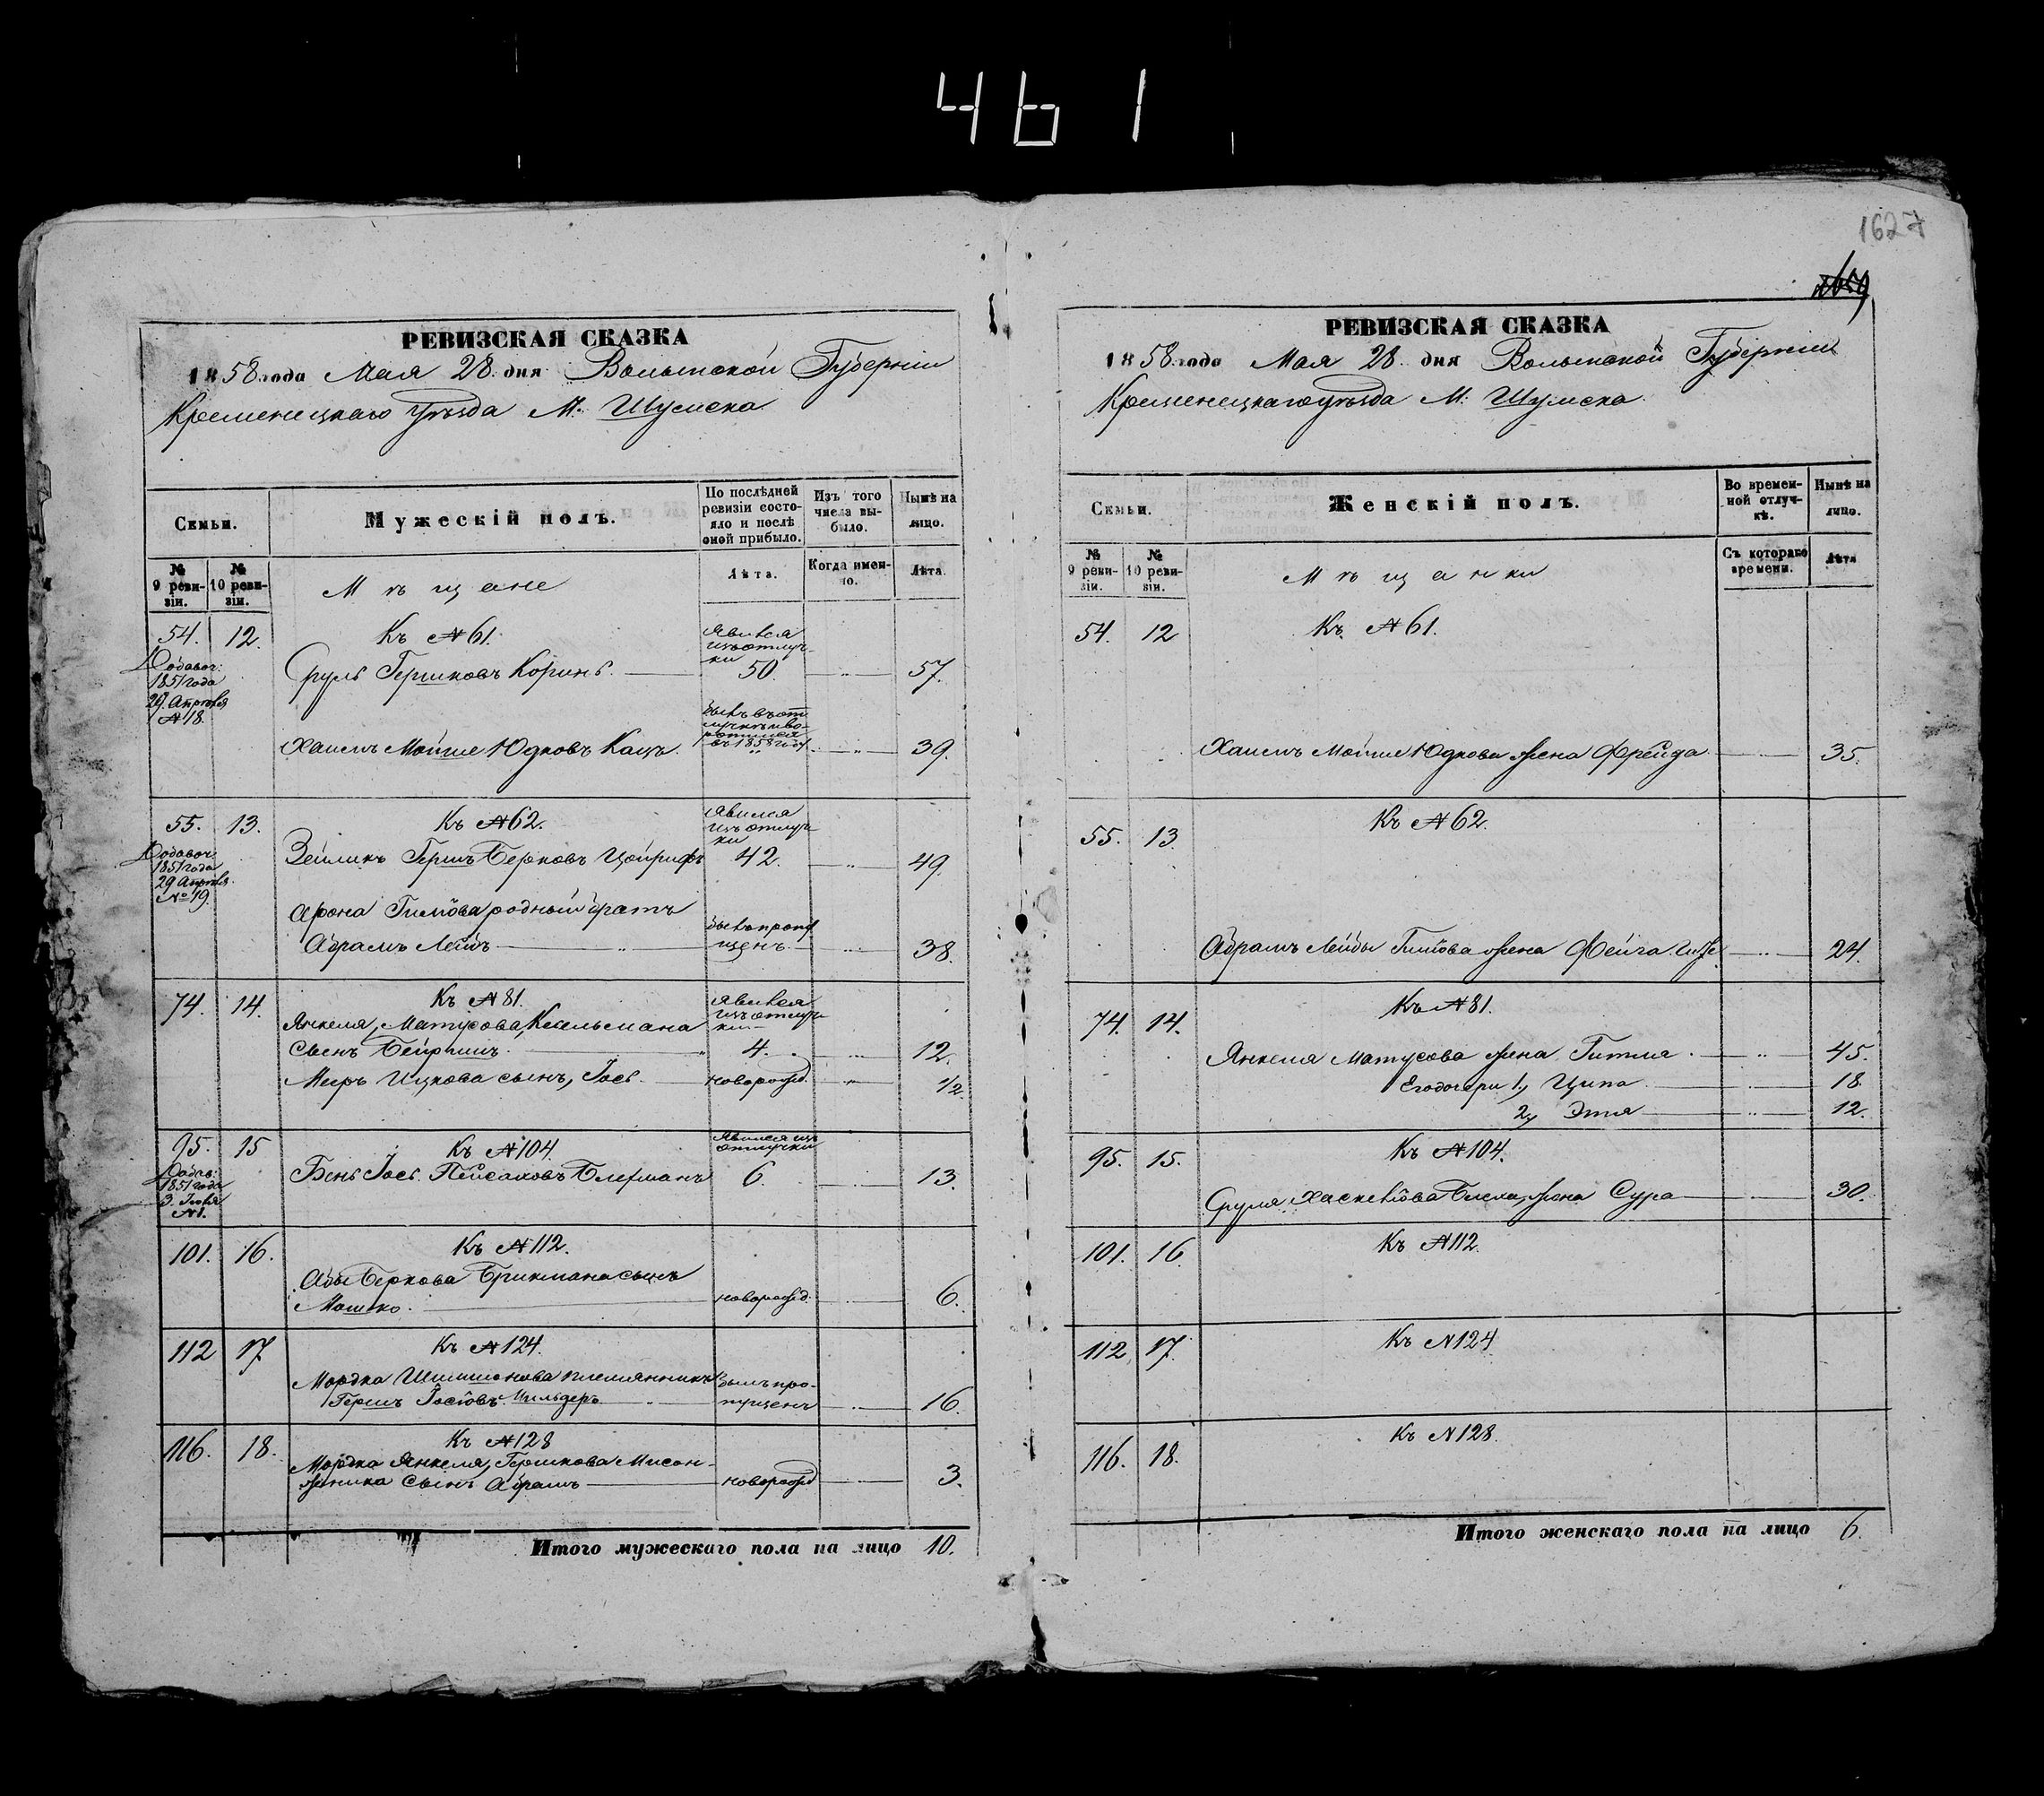 461
1627
РЕВИЗСКАЯ СКАЗКА
1858 года Мая 28. дня Волынской Губерніи
Кременецкаго уѣзда М. Шумска
Семьи.
Мужескій полъ.
По послѣдней ревизіи состо-
яло и послѣ
оной прибыло.
Изъ того
числа вы-
было.
Нынѣ на
лицо.
№
9 реви-
зіи.
№
10 реви-
зіи.
Мѣщане
Лѣта.
Когда имен-
но.
Лѣта.
54. 12. Къ №61.
Явился
изъ отлуч-
ки
Добавоч:
1851 года
29. Апрѣля
№18.
Сруль Гершковъ Коринь 50. 57.
Хаимъ Мойше Юдковъ Кацъ
въ 1858 году 39.
55. 13. Къ №62.
Явился
изъ отлуч-
ки
Добавоч:
1851 года
29 Апрѣля
№19.
Зейликъ Герш Берковъ 42. 49.
Арона родный братъ
Абрамъ Лейбъ
щенъ 38.
74. 14. Къ №81.
Явился
изъ отлуч-
ки
Янкеля Матусова Кесельмана
сынъ 4. 12.
Меиръ Ицкова сынъ, Іось новорожд. 1/2.
95. 15 Къ №104.
Явился изъ
отлучки
1851 года
№1.
Бень Іось Пейсаховъ 6. 13.
101. 16. Къ №112.
Абы Беркова Брикмана сынъ
Мошко новорожд. 6.
112 17 Къ №124.
Мордка Шимшонова племянникъ
былъ про-
Гершъ Іосіовъ
пущенъ 16.
116. 18. Къ №128
Мордка Янкеля Гершкова Мисон-
жника сынъ Абрамъ новорожд 3.
Итого мужескаго пола на лицо 10.
РЕВИЗСКАЯ СКАЗКА
1858 года Мая 28. дня Волынской Губерніи
Кременецкаго уѣзда М. Шумска.
Семьи.
Женскій полъ.
Во времен-
ной отлуч-
кѣ.
Нынѣ на
лицо.
№
9 реви-
зіи.
№
10 реви-
зіи.
Мѣщанки
Съ котораго
времени.
Лѣта
54. 12 Къ №61.
Хаимъ Мойше Юдкова жена Фрейда 35.
55. 13. Къ №62.
Абрамъ Лейбы жена Фейга 24.
74. 14. Къ №81.
Янкеля Матусова жена Гитля 45.
Его дочери 1, Ципа 18.
2, Этя 12.
95. 15. Къ №104.
Сруля жена Сура 30.
101. 16 Къ №112.
112 17. Къ №124
116. 18. Къ №128.
Итого женскаго пола на лицо 6.